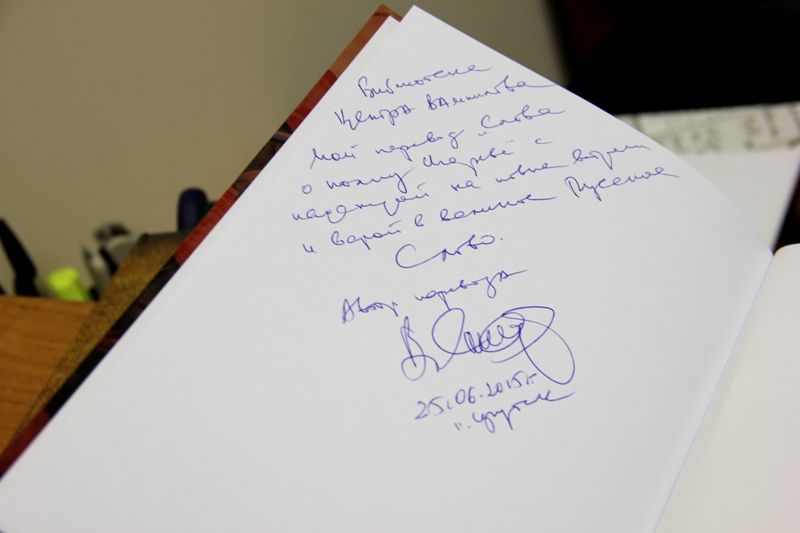 Библиотека
Центра Вампилова
Мой перевод „Слова
о полку Игореве" с
надеждой на новые встречи
и верой в великое Русское
Слово.
Автор перевода
25.06.2015г.
г. Иркутск